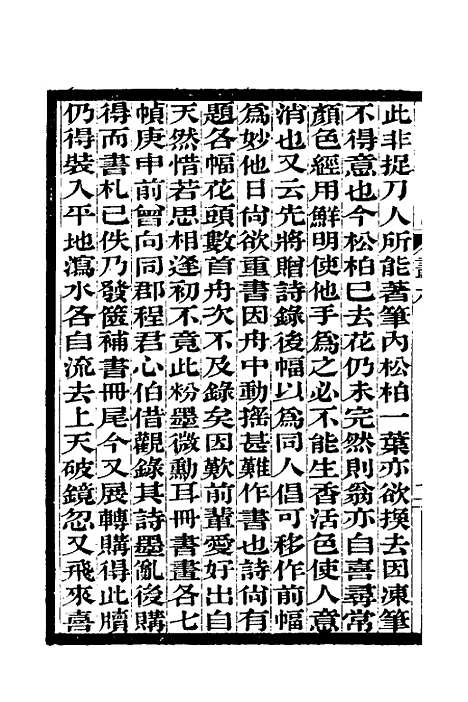 此非捉刀人所能著筆內松柏一葉亦欲換去因凍筆
不得意也今松柏已去花仍未完然則翁亦自喜尋常
顏色經用鮮明使他手為之必不能生香活色使人意
消也又云先將贈詩錄後幅以為同人倡可移作前幅
為妙他日尚欲重書因舟中動搖甚難作書也詩尚有
題各幅花頭數首舟次不及錄矣因歎前輩愛好出自
天然惜若思相逢初不竟此粉墨微勳耳冊書畫各七
幀庚申前曾向同郡程君心伯借觀錄其詩墨亂後購
得而書札已佚乃發篋補書冊尾今又展轉購得此牘
仍得裝入平地瀉水各自流去上天破鏡忽又飛來喜